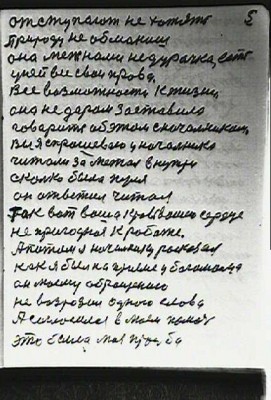 5
отступают не хотят
природу не обманиш
она меж нами не дурачка, есть
у ней все свои права
Все возможности к жизни,
она не даром заставила
говорить об этом с началником,
Вы я спрашеваю у началника
читали за метал внутри
сколко была пуля
он ответил читал
Так вот ваша кров вошло сердце
не пригодная к работе.
А потом я началнику расказал
как я был на приеме у
он моему обращению
не возрозил одного слова
Я согласился в моей помоч
Это была моя прозба